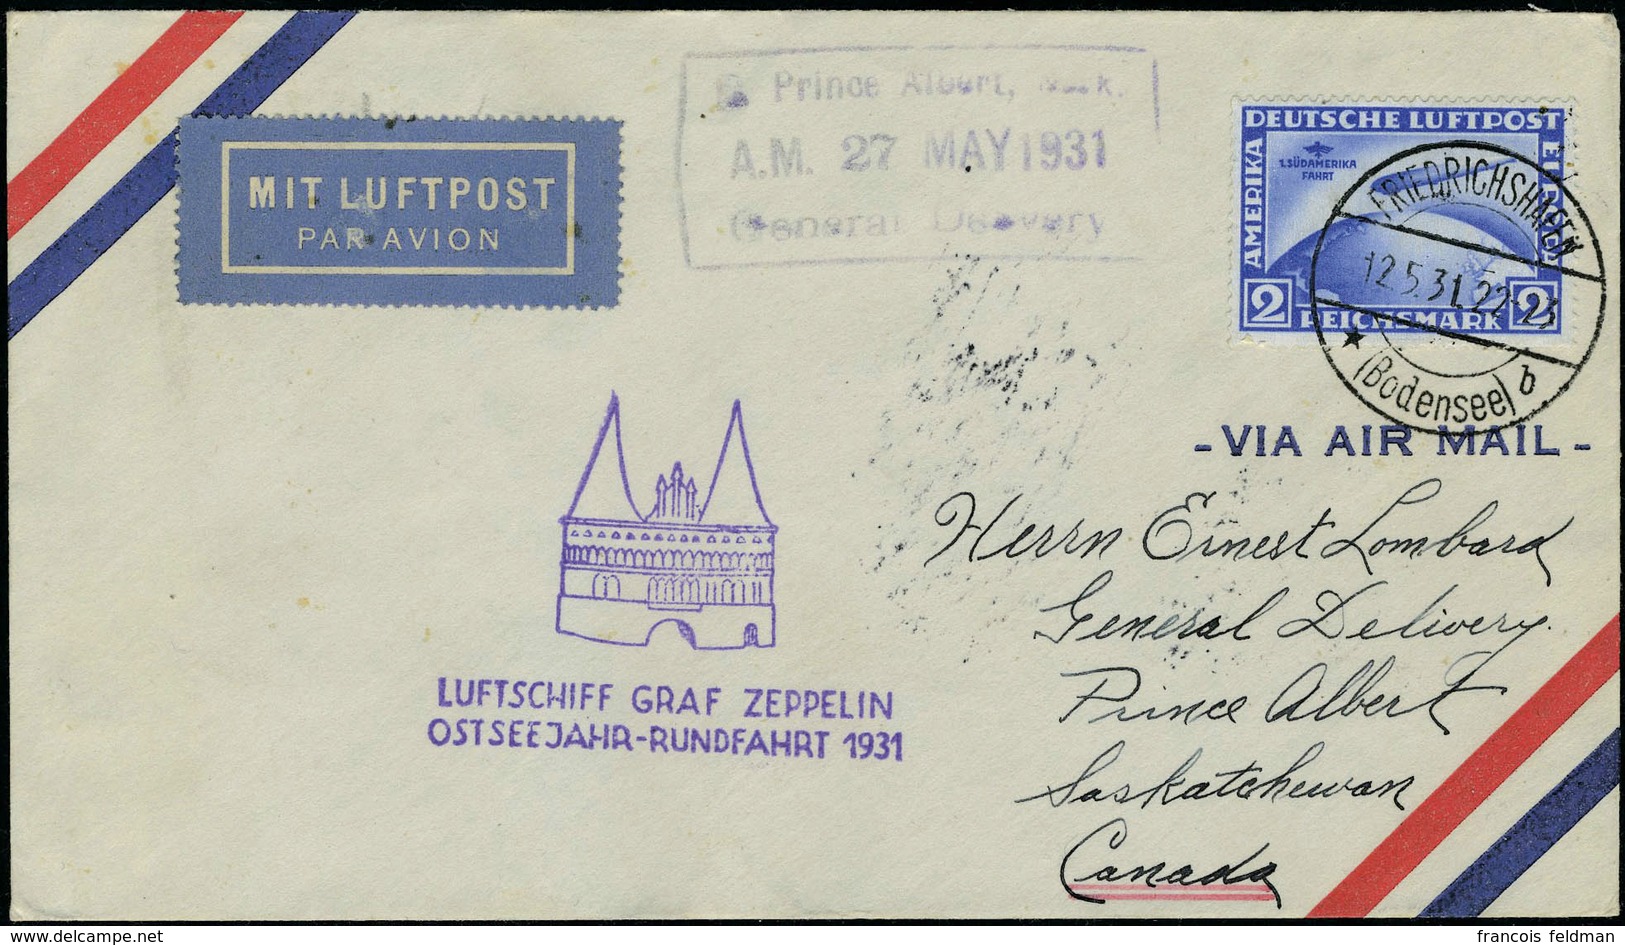 Prince Albert,
A.M. 27 MAY 1931
General Delivery
MIT LUFTPOST
PAR AVION
DEUTSCHE LUFTPOST
AMERIKA
1. SÜDAMERIKA
FAHRT
2 REICHSMARK 2
FRIEDRICHSHAFEN
12.5.31. 22-23
(Bodensee) b
- VIA AIR MAIL -
Herrn Ernest Lombard
General Delivery.
Prince Albert
Saskatchewan
Canada
LUFTSCHIFF GRAF ZEPPELIN
OSTSEEJAHR-RUNDFAHRT 1931
www.delcampe.net
francois feldman